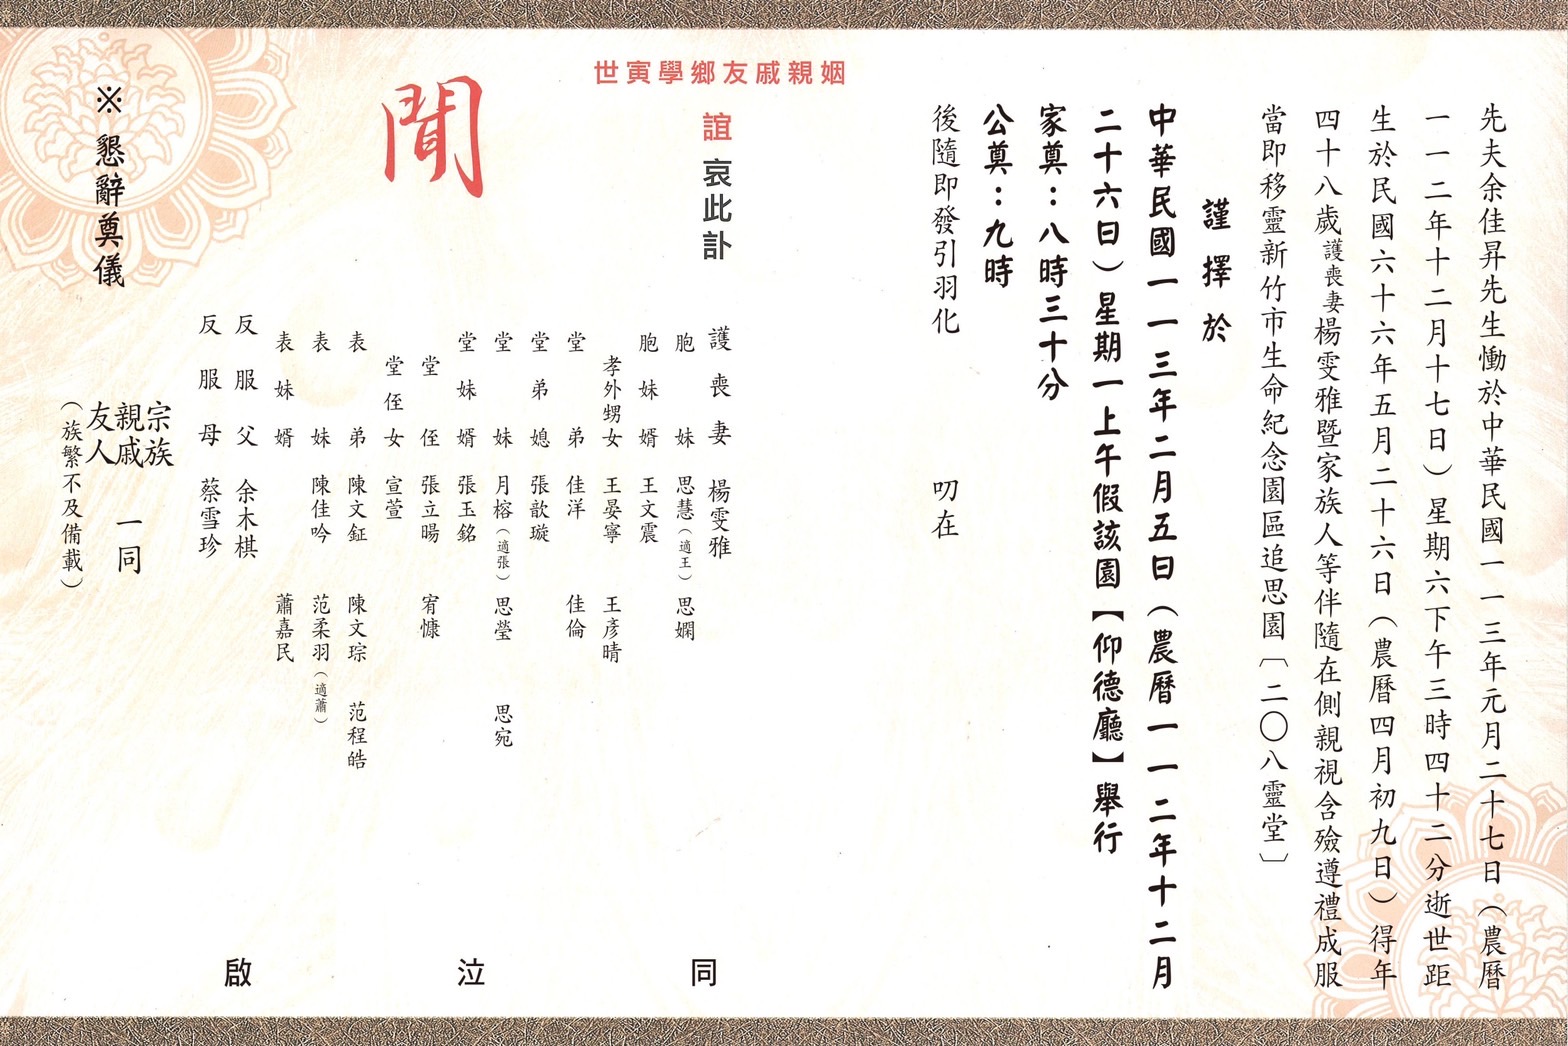 先夫余佳昇先生慟於中華民國一一三年元月二十七日（農曆
一一二年十二月十七日）星期六下午三時四十二分逝世距
生於民國六十六年五月二十六日（農曆四月初九日）得年
四十八歲護喪妻楊雯雅暨家族人等伴隨在側親視含殮遵禮成服
當即移靈新竹市生命紀念園區追思園〔二〇八靈堂〕
謹擇於
中華民國一一三年二月五日（農曆一一二年十二月
二十六日）星期一上午假該園【仰德廳】舉行
家奠：八時三十分
公奠：九時
後隨即發引羽化 叨在
世寅學鄉友戚親姻
誼 哀此訃
聞
護喪妻 楊雯雅
胞妹 思慧（適王） 思嫻
胞妹婿 王文震
孝外甥女 王晏寧 王彥晴
堂弟 佳洋 佳倫
堂弟媳 張歆璇
堂妹 月榕（適張） 思瑩 思宛
堂妹婿 張玉銘
堂侄 張立暘 宥慷
堂侄女 宣萱
表弟 陳文鉦 陳文琮 范程皓
表妹 陳佳吟 范柔羽（適蕭）
表妹婿 蕭嘉民
反服父 余木棋
反服母 蔡雪珍
宗族
親戚 一同
友人
（族繁不及備載）
同 泣 啟
※懇辭奠儀